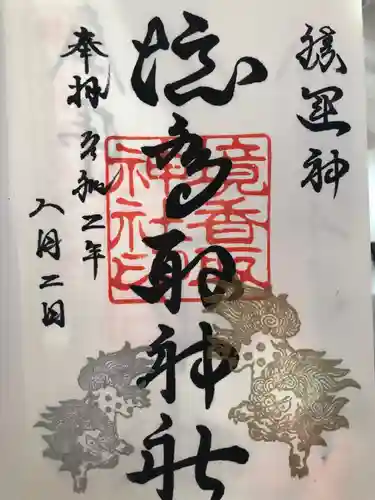 勝運神
境香取神社
境香取神社印
奉拝
令和二年
八月二日